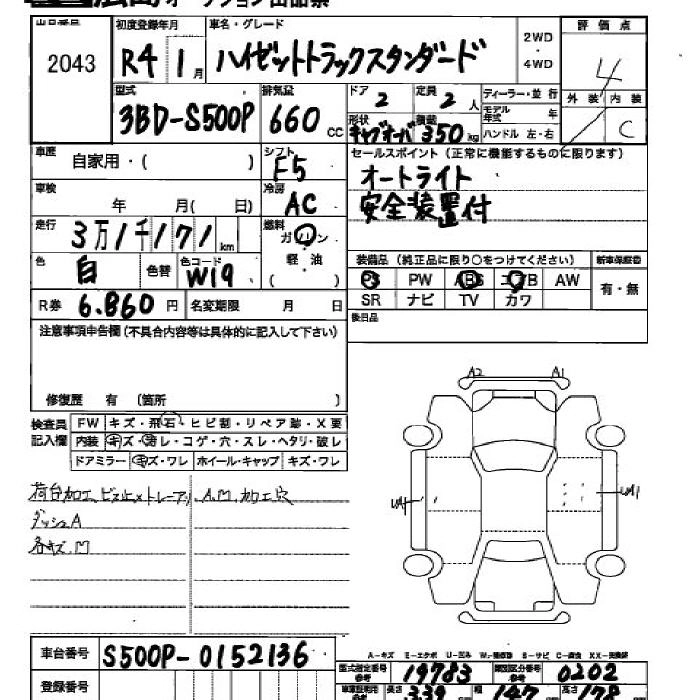 広島 オークション出品票
出品番号 2043
初度登録年月 R4 1月
車名・グレード ハイゼットトラックスタンダード
2WD・4WD
評価点 4
外装 内装 C
型式 3BD-S500P
排気量 660 cc
ドア 2
定員 2 人
形状 キャブオーバ
積載 350 kg
ディーラー・並行
モデル年式 年
ハンドル 左・右
車歴 自家用・( )
シフト F5
セールスポイント(正常に機能するものに限ります)
オートライト
安全装置付
車検 年 月( 日)
冷房 AC
走行 3万1千171km
燃料 ガソリン・軽油・( )
色 白 色替 色コード W19
装備品(純正品に限り○をつけてください) 新車保証書
PS PW ABS エアB AW 有・無
SR ナビ TV カワ
R券 6.860円 名変期限 月 日
後日品
注意事項申告欄(不具合内容等は具体的に記入して下さい)
修復歴 有 (箇所
検査員記入欄
FW キズ・飛石・ヒビ割・リペア跡・X要
内装 キズ・汚レ・コゲ・穴・スレ・ヘタリ・破レ
ドアミラー キズ・ワレ ホイール・キャップ キズ・ワレ
荷台加工、ビス止メトレーアリ、A.M.加工穴
ダッシュA
各キズ.M
A2 A1
UA1
A-キズ E-エクボ U-凹み W-補修跡 S-サビ C-腐食 XX-交換済
車台番号 S500P-0152136
型式指定番号 19783 類別区分番号 0202
登録番号
長さ 339 幅 147 高さ 178